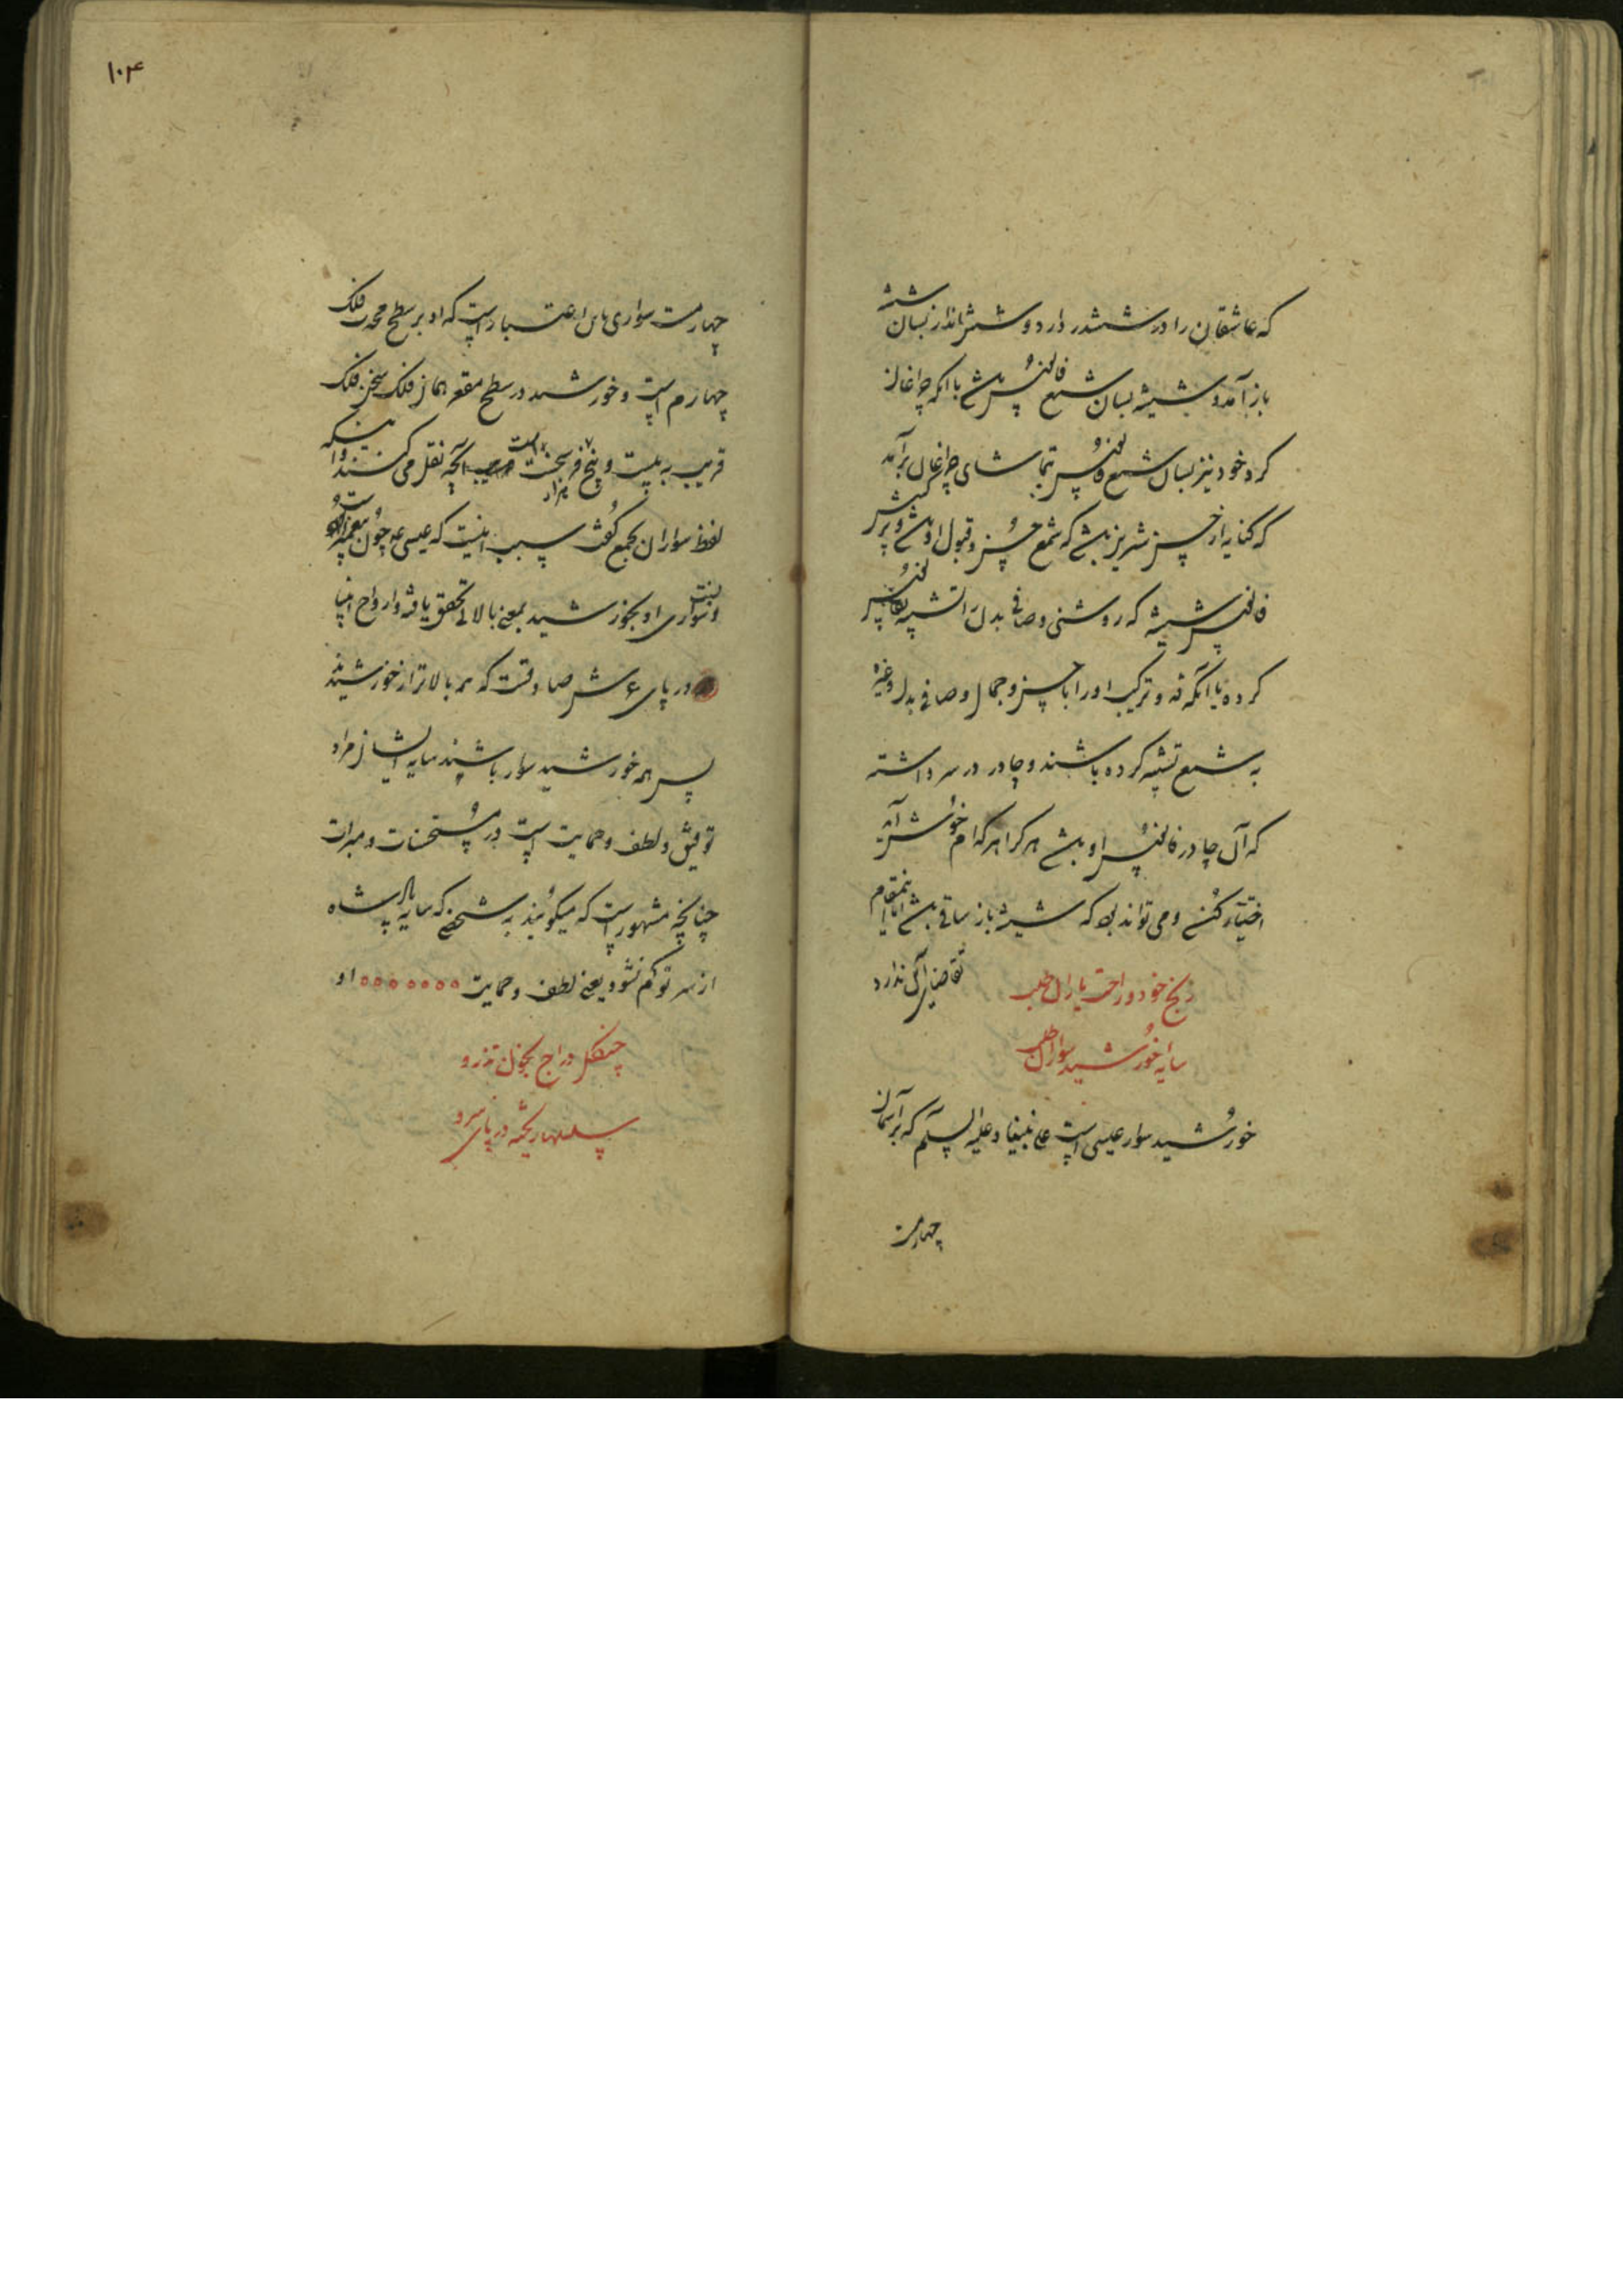 که عاشقان را در ششدر دارد و شش انداز بسان شیشه
باز آمد و شیشه بسان شمع فانوس باشد با آنکه چراغان
کرد خود نیز بسان شمع فانوس تماشای چراغان برآمد
که کنایه از حسن شریر باشد که شمع حسن و قبول او باشد و
فانوس شیشه که روشنی و صافی بدن را تشبیه بفانوس
کرده یا آنکه قد و ترکیب او را با حسن و جمال و صافی بدن وغیره
به شمع تشبیه کرده باشند و چادر در سر داشته
که آن چادر فانوس او باشد هر کرا هر کدام خوش آید
اختیار کند و می تواند بود که شیشه باز ساقی باشد اما اینمقام
تقاضای آن ندارد
رنج خود و راحت یاران طلب
سایه خورشید سواران طلب
خورشید سوار عیسی است علی نبینا و علیه السلام که بر آسمان
چهارمست
۱۰۴
چهارمست سواری باین اعتبار است که او بر سطح محدب فلک
چهارم است و خورشید در سطح مقعر همان فلک
قریب به بیست و پنج هزار فرسخست آنچه نقل می کنند و اینکه
لفظ سواران بجمع گفت سبب اینست که عیسی ع چون پیغمبر
و سواری او بخورشید بمعنی بالائی تحقق یافته و ارواح انبیا
در پای عرش صادقست که همه بالاتر از خورشیدند
پس همه خورشید سوار باشند سایه ایشان مراد
توفیق و لطف و حمایت است در مستحسنات و مبرات
چنانچه مشهور است که میگویند به شخصی که سایه پادشاه
از سر تو کم نشود یعنی لطف و حمایت او
چنگل دراج بخون تذرو
سلسله ریخته در پای سرو